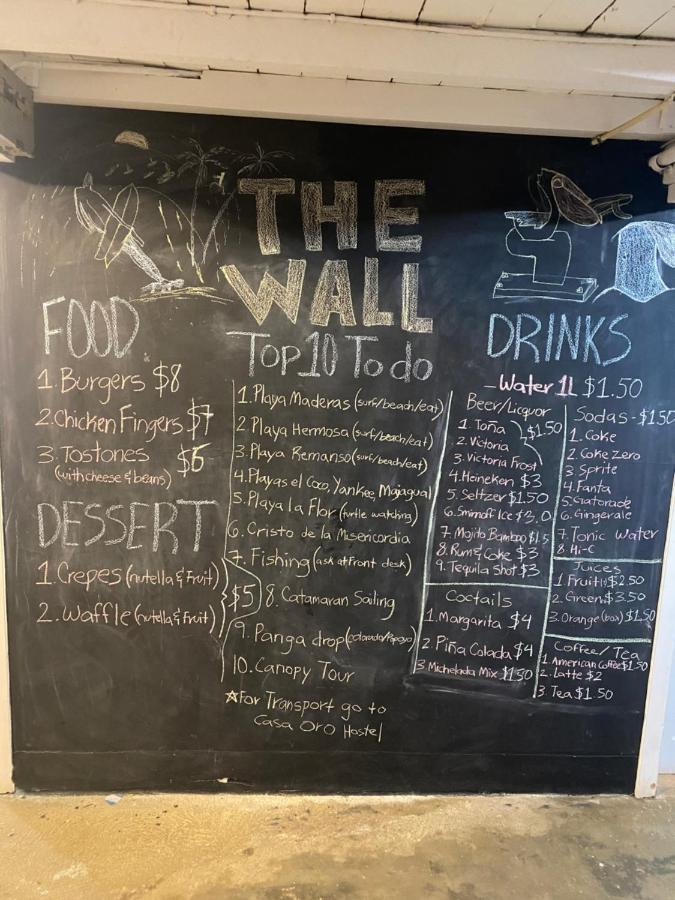 THE
WALL
FOOD
1. Burgers $8
2. Chicken Fingers $7
3. Tostones $6
(with cheese & beans)
DESSERT
1. Crepes (nutella & fruit)
2. Waffle (nutella & fruit)
$5
Top 10 To do
1. Playa Maderas (surf/beach/eat)
2 Playa Hermosa (surf/beach/eat)
3. Playa Remanso (surf/beach/eat)
4. Playas el Coco, Yankee, Majagual
5. Playa la Flor (turtle watching)
6. Cristo de la Misericordia
7. Fishing (ask at front desk)
8. Catamaran Sailing
9. Panga drop (colorado/Popoyo)
10. Canopy Tour
☆For Transport go to
Casa Oro Hostel
DRINKS
- Water 1L $1.50
Beer/Liquor
1. Toña
2. Victoria
3. Victoria Frost
$1.50
4. Heineken $3
5. Seltzer $1.50
6. Smirnoff Ice
7. Mojito Bamboo
8. Rum & Coke $3
9. Tequila Shot $3
Coctails
1. Margarita $4
2. Piña Colada $4
3 Michelada Mix $1.50
Sodas - $1.50
1. Coke
2. Coke Zero
3. Sprite
4. Fanta
5. Gatorade
6. Gingerale
7. Tonic Water
8. Hi-C
Juices
1 Fruit $2.50
2. Green $3.50
3. Orange (box) $1.50
Coffee/Tea
1. American Coffee $1.50
2. Latte $2
3. Tea $1.50